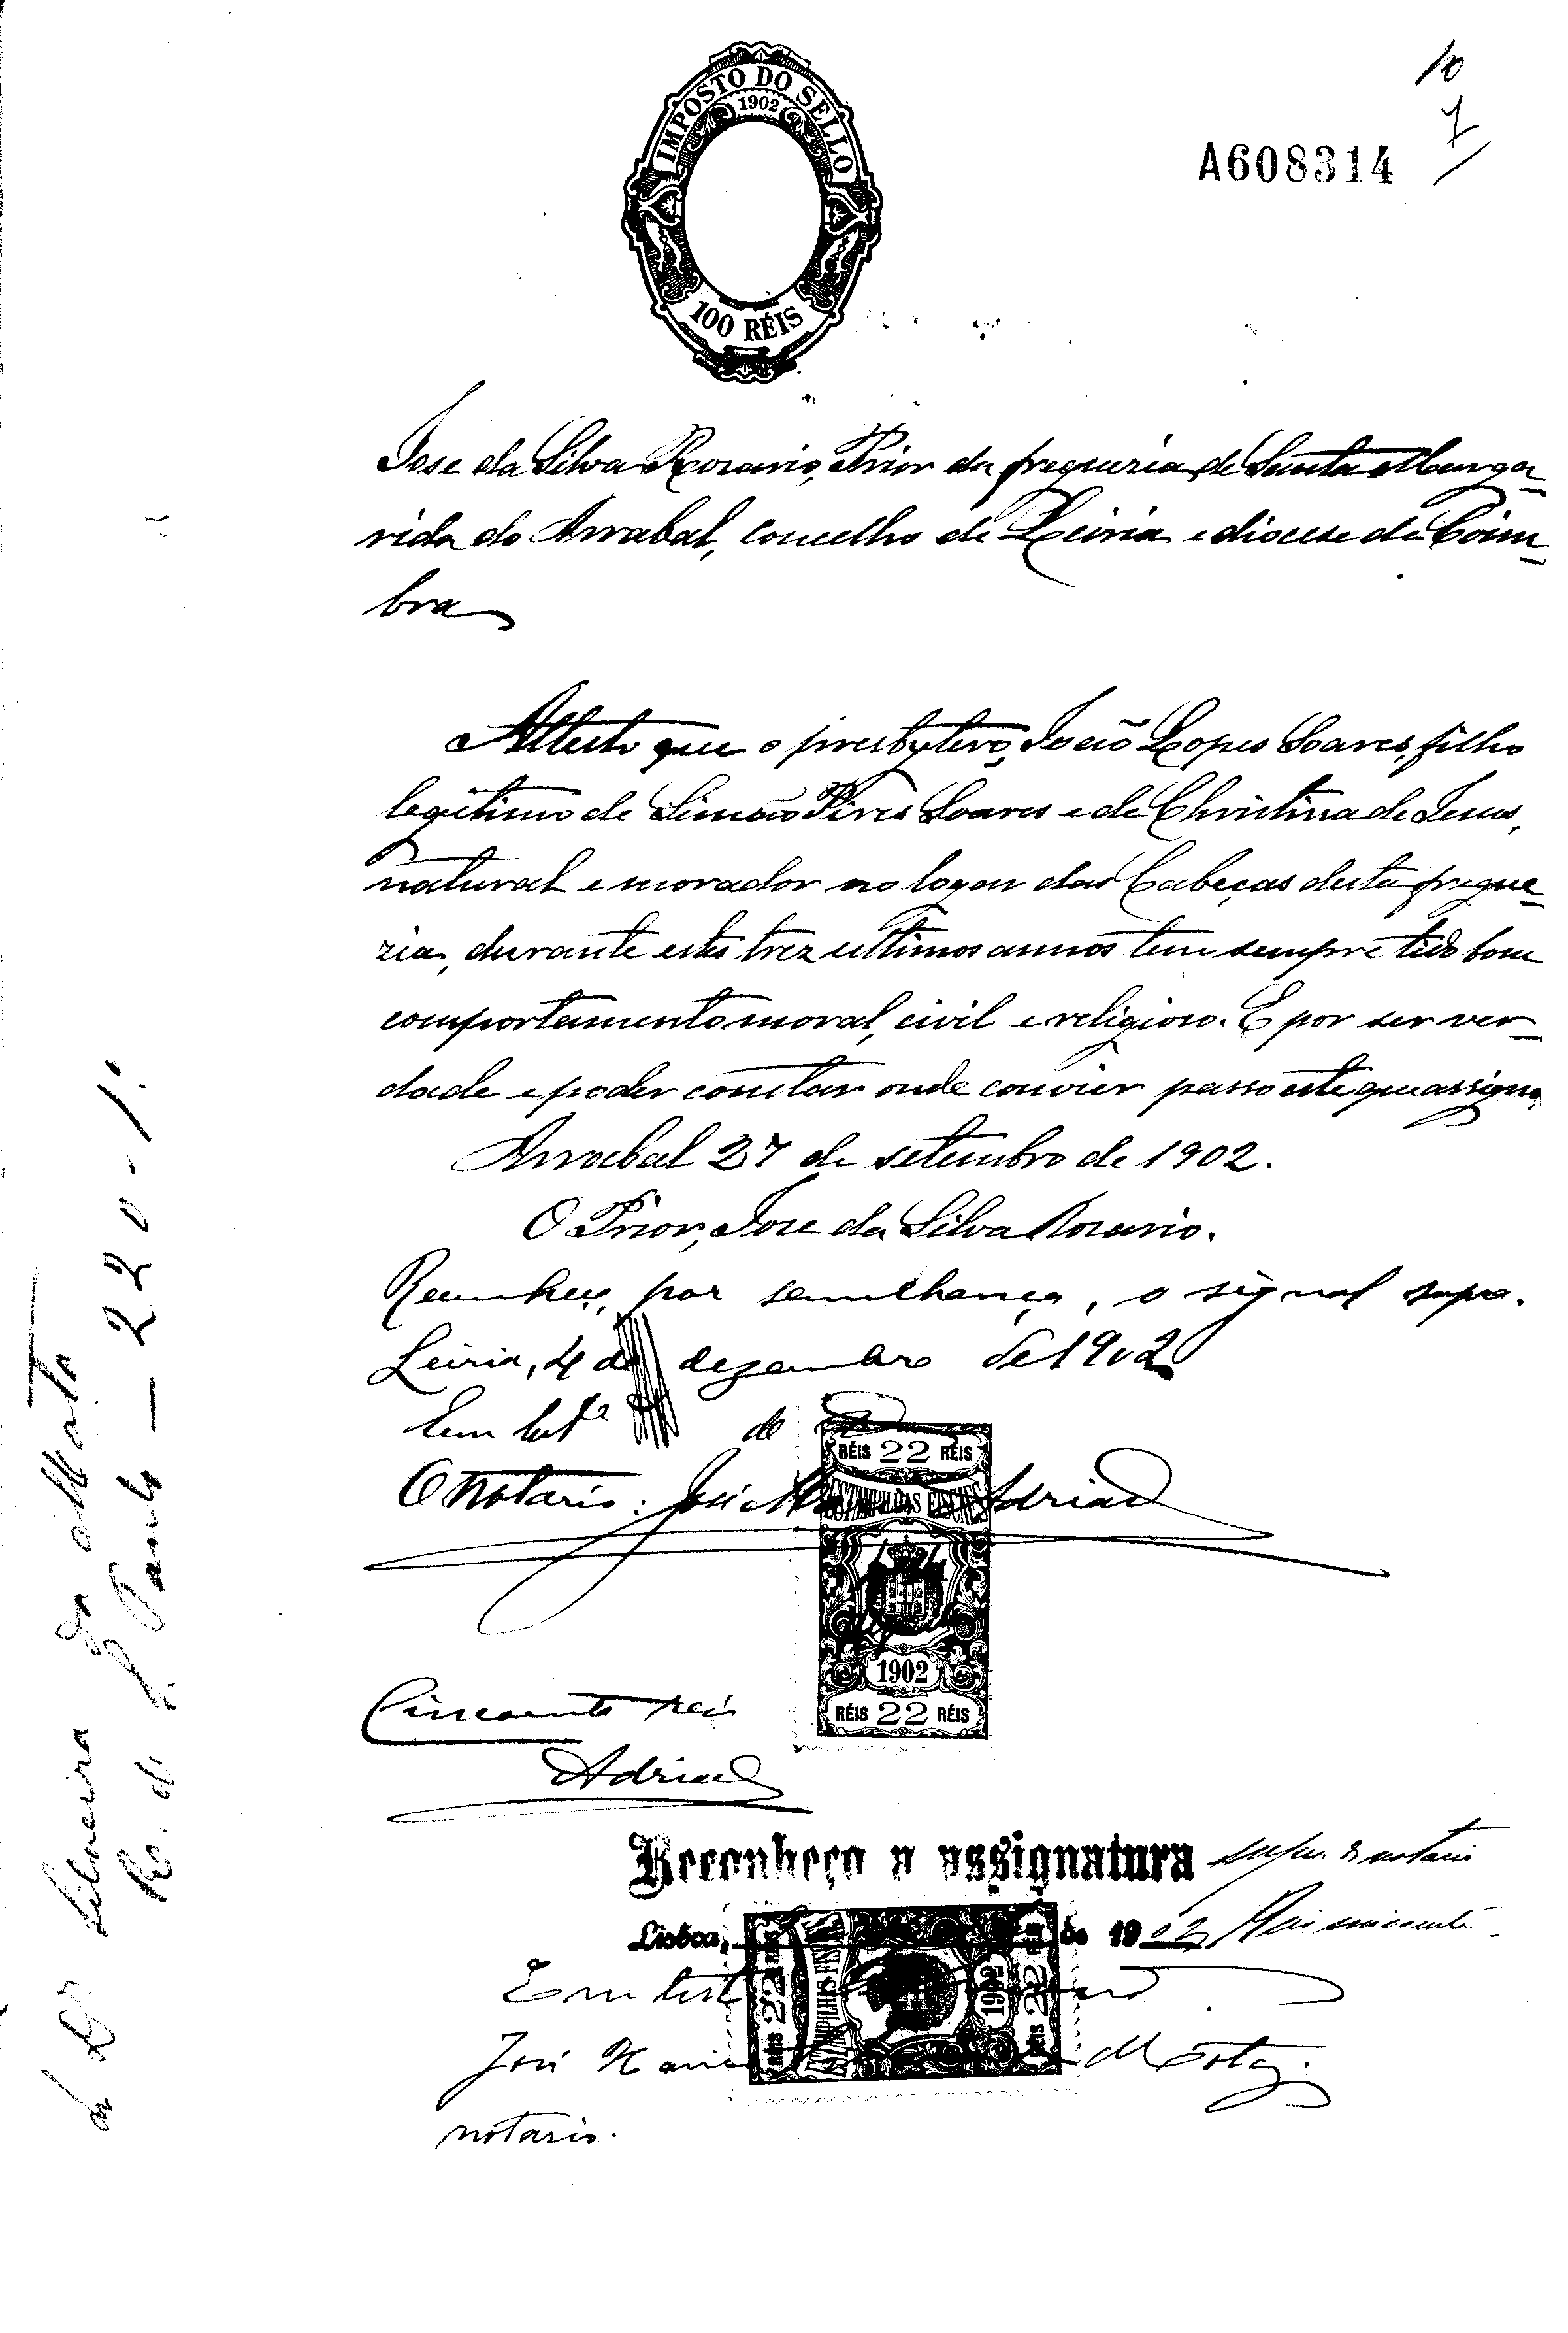 10
7
IMPOSTO DO SELLO
1902
100 RÉIS
A608314
Jose da Silva Rosario, Prior da freguezia de Santa Marga-
rida do Arrabal, concelho de Leiria e diocese de Coim-
bra
Attesto que o presbytero, João Lopes Soares, filho
legitimo de Simão Pires Soares e de Christina de Jesus,
natural e morador no logar das Cabeças desta fregue-
zia, durante estes trez ultimos annos tem sempre tido bom
comportamento moral, civil e religioso. E por ser ver-
dade e poder constar onde convier passo este que assigno.
Arrabal 27 de setembro de 1902.
O Prior, Jose da Silva Rosario.
Reconheço, por semelhança, o signal supra.
Leiria, 4 de dezembro de 1902
Em test.º de
RÉIS 22 RÉIS
O notario: José Adriao
ESTAMPILHAS FISCAES
1902
RÉIS 22 RÉIS
Cincoenta reis
Adriao
Reconheço a assignatura supra do notario
Lisboa, de 1902
Em test
RÉIS 22 RÉIS
1902
José
notario.
Silveira da Motta
R. de S. Paulo — 220-1.º